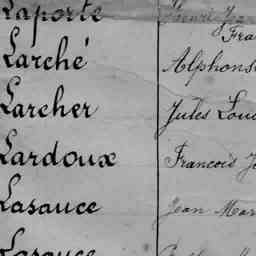 Laporte Henri Jean
Fra
Larché Alphons
Larcher Jules Lou
Lardoux Francois J
Lasauce Jean Mar
Lasauce